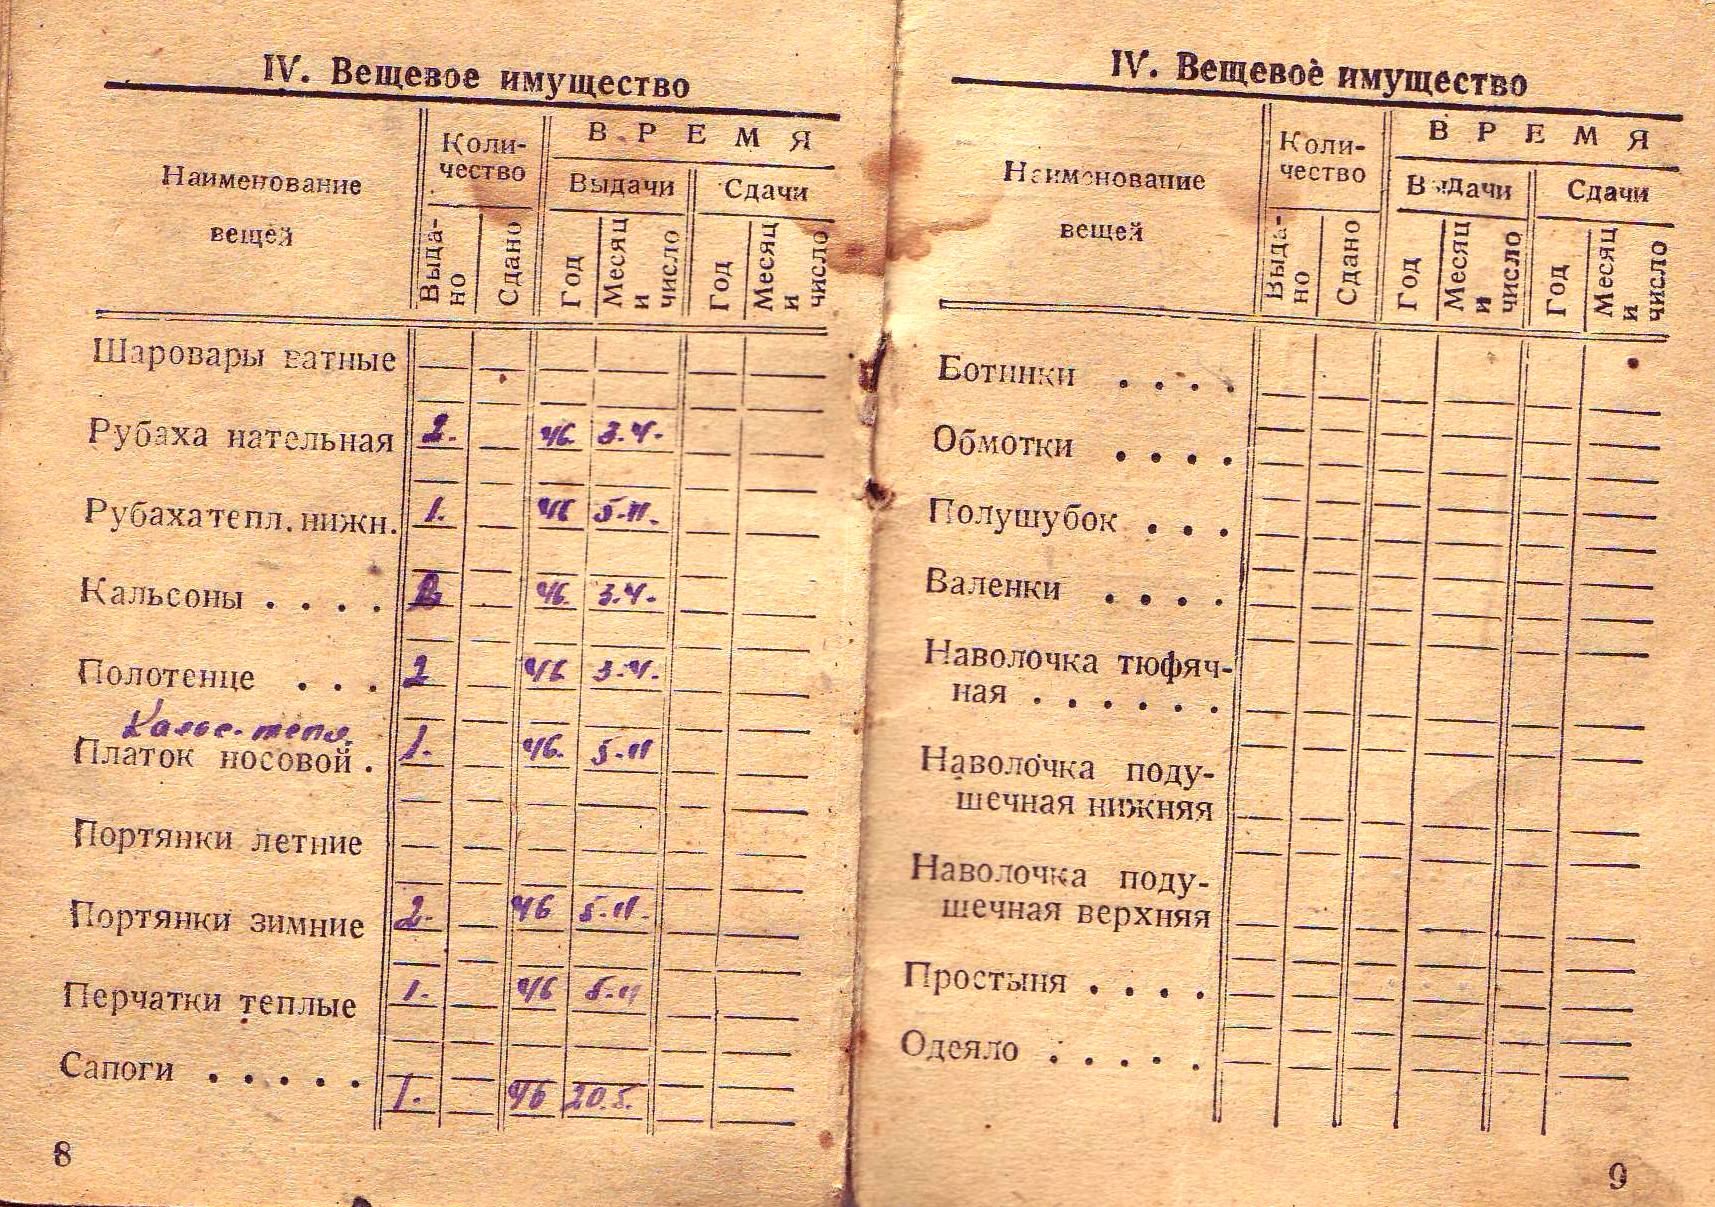 IV. Вещевое имущество
Наименование вещей
Коли-
чество
ВРЕМЯ
Выдачи
Сдачи
Выда-
но
Сдано
Год
Месяц
и
число
Год
Месяц
и
число
Шаровары ватные
Рубаха нательная 2. 46. 3.4.
Рубаха тепл. нижн. 1. 46 5.11.
Кальсоны . . . . 2 46. 3.4.
Полотенце . . . 2 46 3.4.
Кальс. тепл.
Платок носовой . 1. 46. 5.11
Портянки летние
Портянки зимние 2. 46 5.11.
Перчатки теплые 1. 46 5.11
Сапоги . . . . . 1. 46 20.5.
8
IV. Вещевое имущество
Наименование вещей
Коли-
чество
ВРЕМЯ
Выдачи
Сдачи
Выда-
но
Сдано
Год
Месяц
и
число
Год
Месяц
и
число
Ботинки . . . .
Обмотки . . . .
Полушубок . . .
Валенки . . . .
Наволочка тюфяч-
ная . . . . . .
Наволочка поду-
шечная нижняя
Наволочка поду-
шечная верхняя
Простыня . . . .
Одеяло . . . . .
9